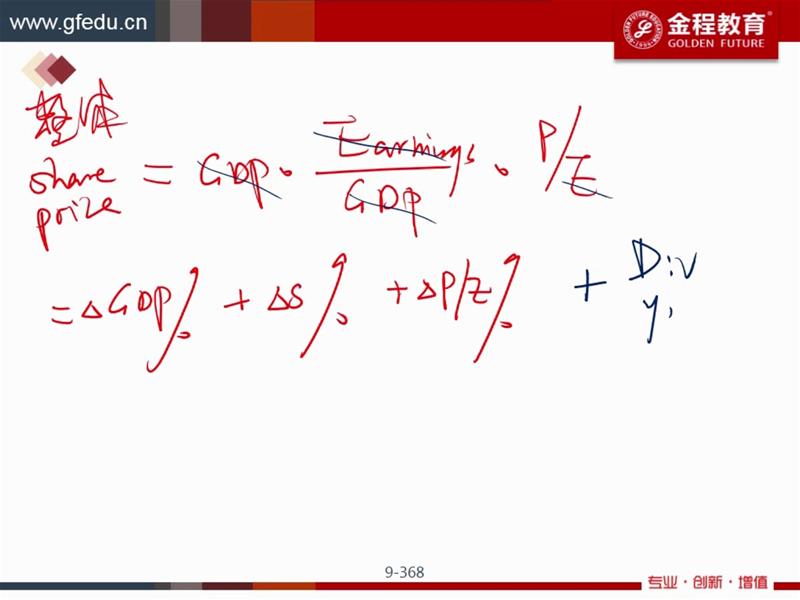 www.gfedu.cn
金程教育
GOLDEN FUTURE
整体
share prize = GDP · Earnings/GDP · P/E
= ΔGDP% + ΔS% + ΔP/E% + Div y.
9-368
专业·创新·增值